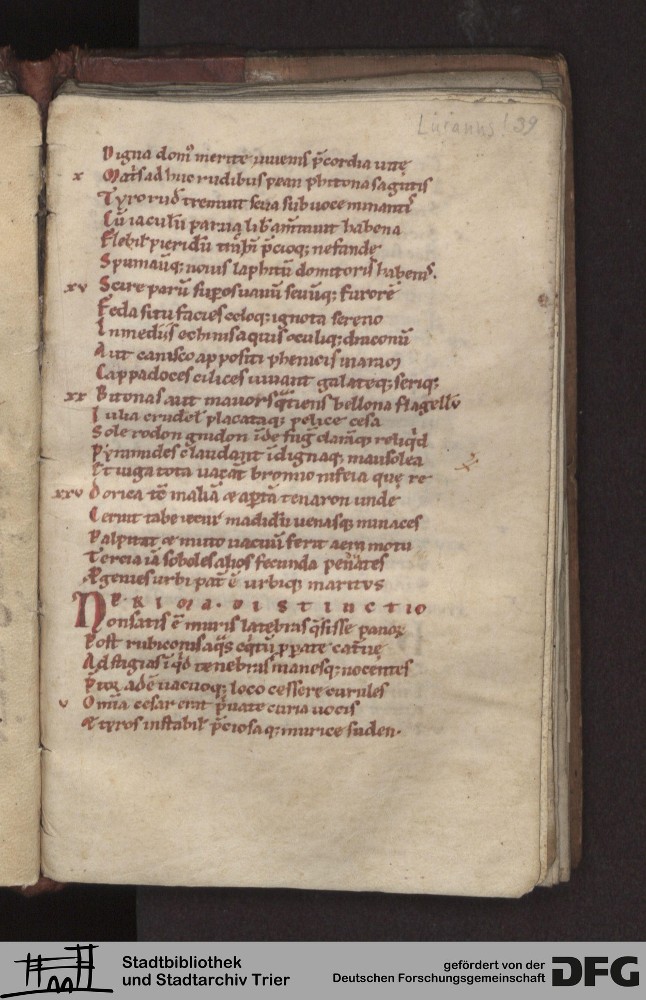 Lucanus! 39
Digna dom⁹ merite uiuens p̄cordia uitę
x Mart̄s adhuc rudibus pean phitona sagittis
Tyro rud̄ tremunt seua sub uoce minant̄
Cū iaculū parua lib̄ am̄tauit habena
Flebil̄ pieridū p̄cioq; nefande
Spumauitq; nouis laphitū domitoris habenis.
xv Scire parū sup̄os uanū seuūq; furorē
Feda situ facies celoq; ignota sereno
In mediis echinis aquis oculiq; draconū
Aut canis appositi phenicis
Cappadoces cilices uiuant galateq; seriq;
xx Bitonas aut mauors q̄tiens bellona flagellū
Iulia crudel̄ placataq; pelice cesa
Sole rodon gnidon īde fuḡ claramq; reliq̄d
Pyramides c̄ laudant īdignaq; mausolea
Et iuga tota uacāt bromio niseia quę re
xxv Dorica tē maliā æ ap̄tā tenaron unde
Cernit tabe iecur madidū uenasq; minaces
Palpitat æ muto uacuū ferit aera motu
Tercia iā soboles alios fecunda penates
Ægenies urbi pat̄ ē urbiq; maritvs
PERIOA. DISTINCTIO
Non satis ē muris latębras q̄sisse pauor̄
Post rubiconis aq̄s
Ad stigias īq̄d tenebras manesq; uocentes
adē uacuoq; loco cessere curules
v Omīa cesar erat p̄uate curia uocis
Æ tyros instabil̄ p̄ciosaq; murice sidon.
Stadtbibliothek
und Stadtarchiv Trier
gefördert von der
Deutschen Forschungsgemeinschaft
DFG